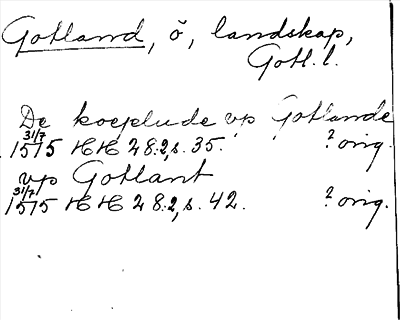 Gotland, ö, landskap,
Gotl. l.
De koeplude vp Gotlande
31/7
1515 HH 28:2, s. 35. ? orig.
vp Gotlant
31/7
1515 HH 28:2, s. 42. ? orig.